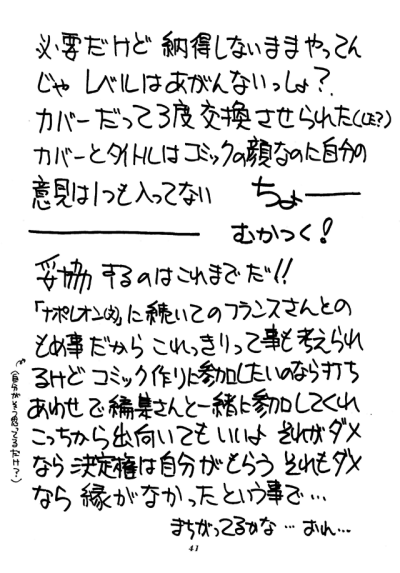 必要だけど 納得しないままやってん
じゃ レベルはあがんないっしょ?
カバーだって3度交換させられた(LE?)
カバーとタイトルはコミックの顔なのに自分の
意見は1つも入ってない ちょ――
――― むかつく!
妥協するのはこれまでだ!!
「ナポレオン(犬)」に続いてのフランスさんとの
もめ事だから これっきりって事も考えられ
るけど コミック作りに参加したいのなら打ち
あわせで編集さんと一緒に参加してくれ
こっちから出向いてもいいよ それがダメ
なら 決定権は自分がもらう それもダメ
なら 縁がなかったという事で…
まちがってるかな … おれ…
(自分がそう思ってるだけ?)
41